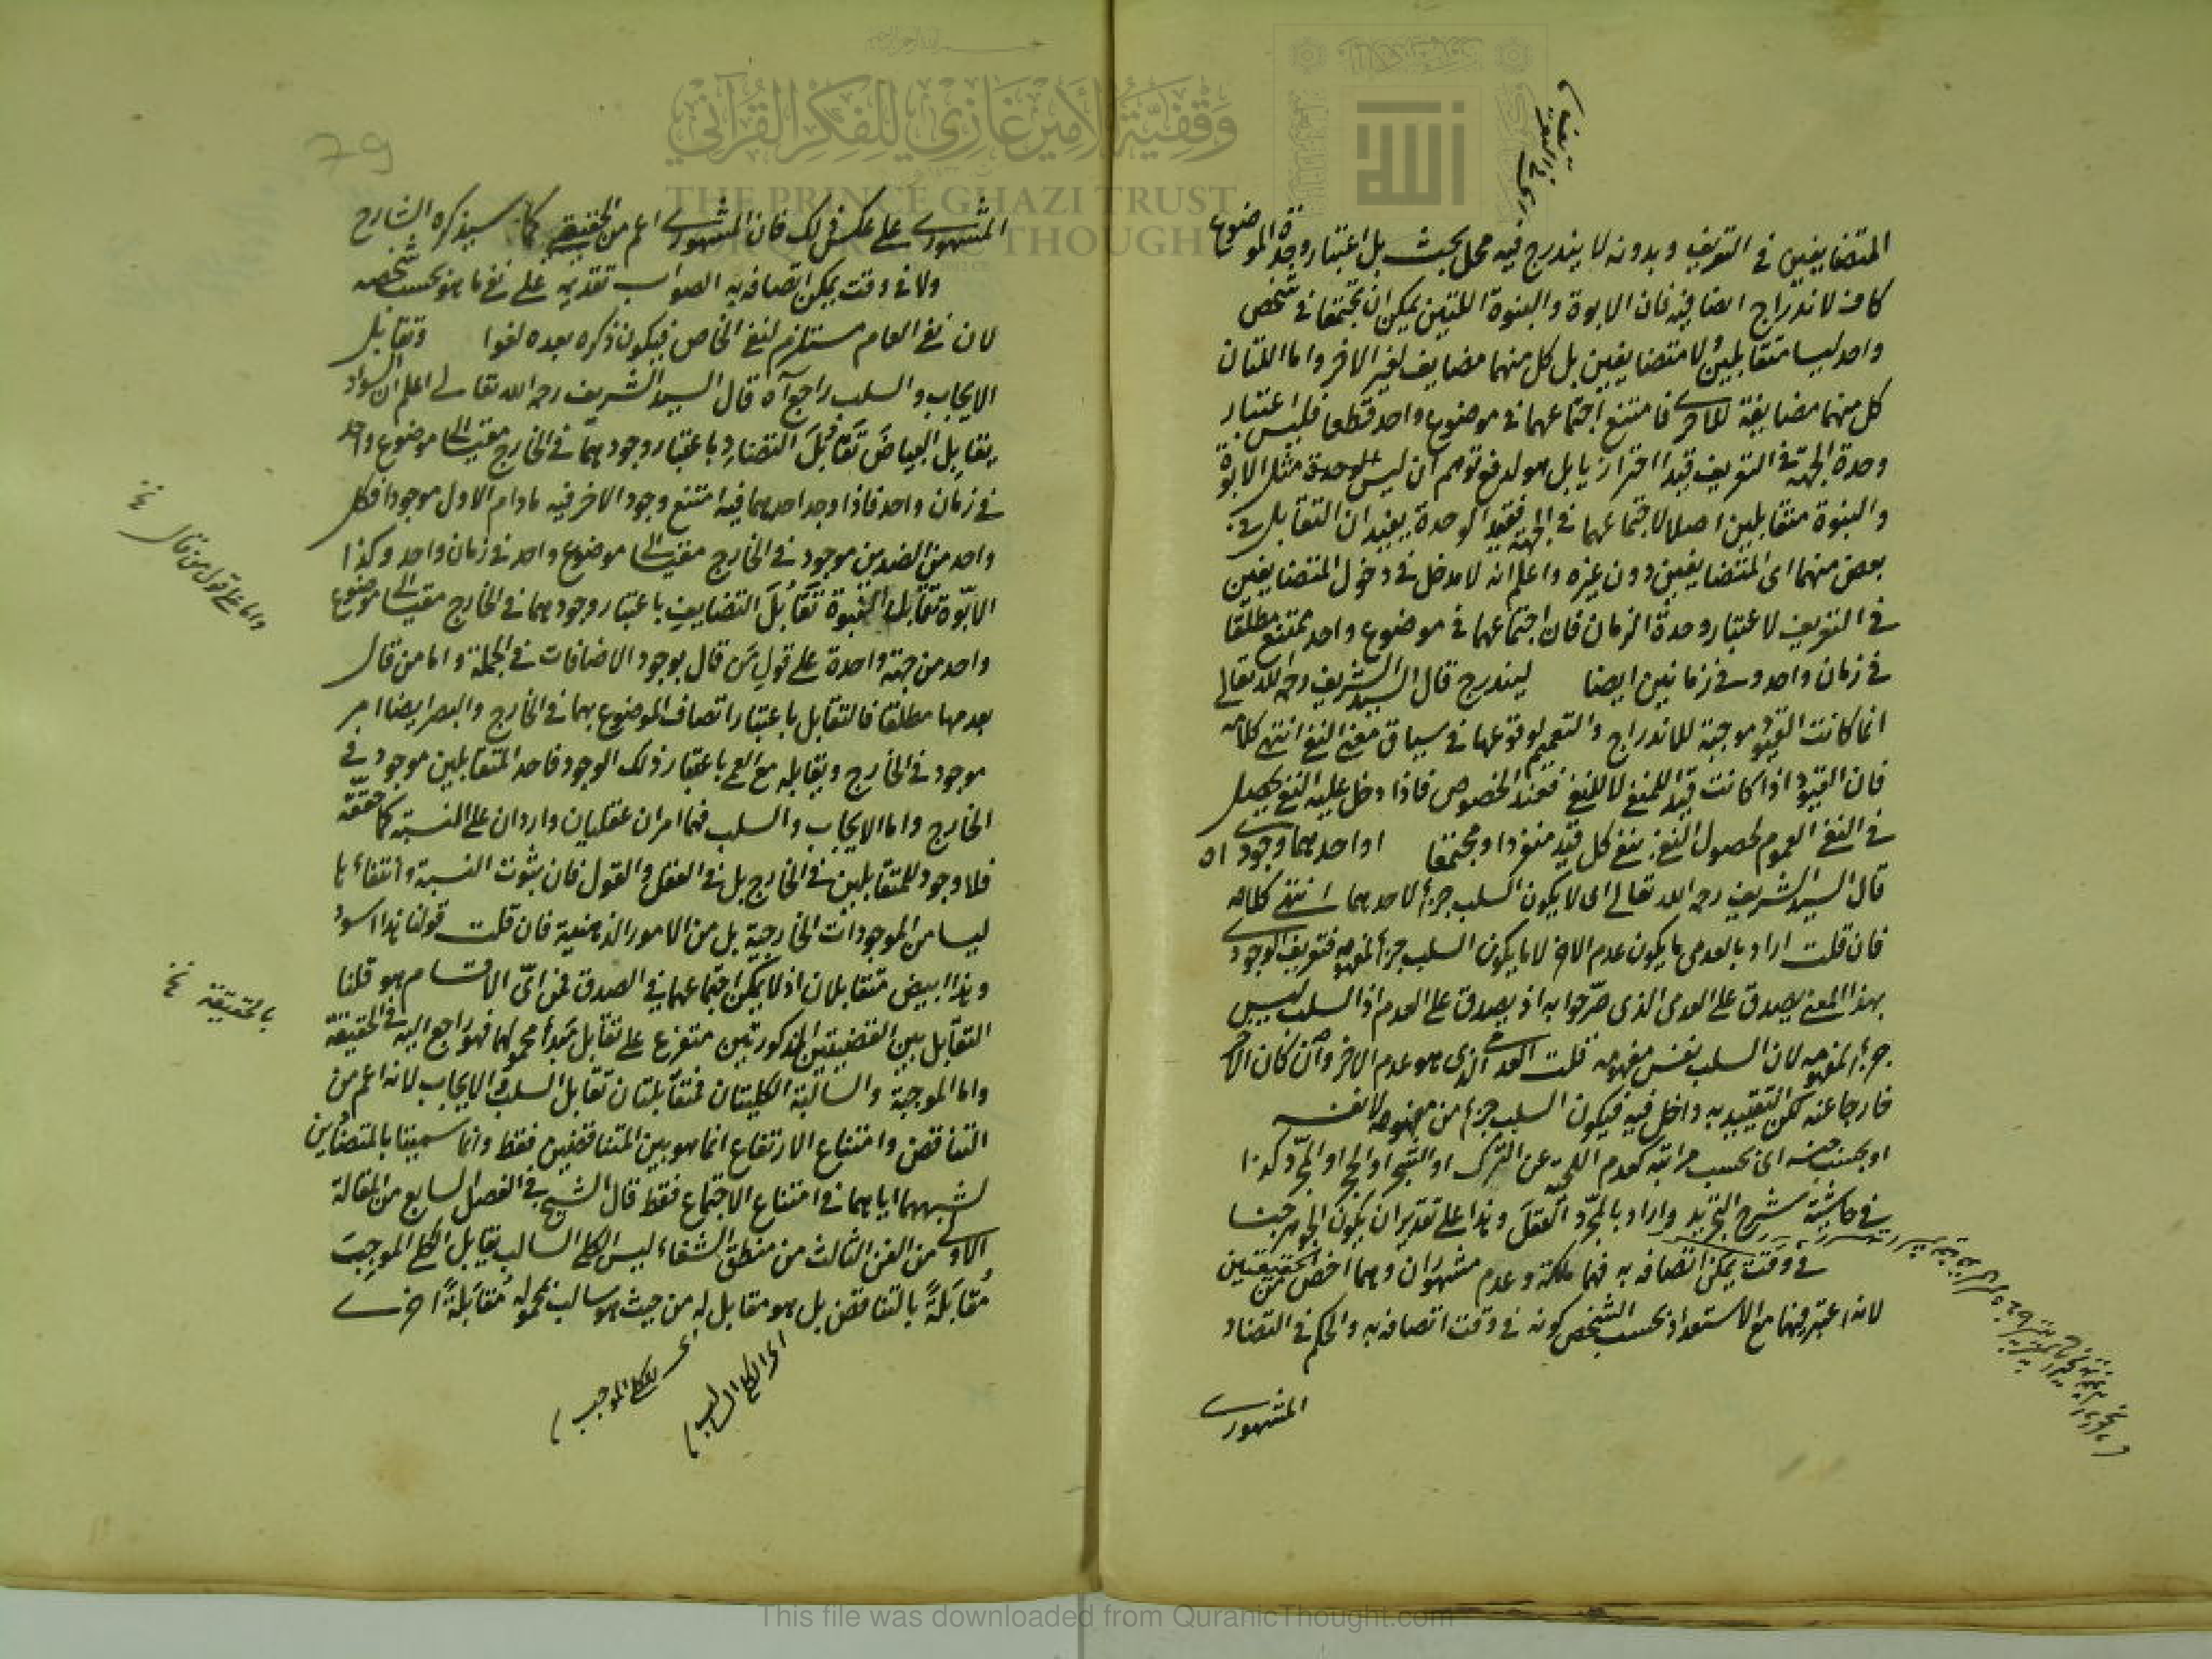 المتضايفين في التعريف وبدونه لا يندرج فيه محل بحث بل اعتبار وحدة الموضوع
كاف لاندراج ايضا فيه فان الابوة والبنوة اللتين يمكن ان تجتمعا في شخص
واحد ليسا متقابلين ولا متضايفين بل كل منهما مضايف لغير الاخر واما اللتان
كل منهما مضايفة للاخرى فامتنع اجتماعهما في موضوع واحد قطعا فليس اعتبار
وحدة الجهة في التعريف قيدا احترازيا بل هو لدفع توهم ان ليس للوحدة مثل الابوة
والبنوة متقابلين اصلا لاجتماعهما في الجهة فقيد الوحدة يفيد ان التقابل في
بعض منهما اى المتضايفين دون غيره واعلم انه لا مدخل في دخول المتضايفين
في التعريف لاعتبار وحدة الزمان فان اجتماعهما في موضوع واحد ممتنع مطلقا
في زمان واحد وفي زمانين ايضا ليندرج قال السيد الشريف رحمه الله تعالى
انما كانت القيود موجبة للاندراج والتعميم لوقوعها في سياق معنى النفي انتهى كلامه
فان القيود اذا كانت قيدا للمنفي لا للنفي فعند الخصوص فاذا دخل عليه النفي يحصل
في النفي العموم لحصول النفي بنفي كل قيد منفردا ومجتمعا او احدهما وجودى اه
قال السيد الشريف رحمه الله تعالى اى لا يكون السلب جزأ لاحدهما انتهى كلامه
فان قلت اراد بالعدمى ما يكون عدم الاخر لا ما يكون السلب جزأ لمفهومه فتعريف الوجودى
بهذا المعنى يصدق على العدمى الذى صرحوا به اذ يصدق على العدم اذ السلب ليس
جزأ لمفهومه لان السلب نفس مفهومه قلت العدمى الذى هو عدم الاخر وان كان الاخر
خارجا عنه لكن التقييد به داخل فيه فيكون السلب جزأ من مفهومه لا نفسه
او بحسب جنسه اى بحسب مراتبه كعدم اللحية عن الترك او الشجر او الحجر او المجرد كذا
في حاشية شرح التجريد واراد بالمجرد العقل وهذا على تقدير ان يكون الجوهر جنسا
في وقت يمكن اتصافه به فهما ملكة وعدم مشهوران وهما اخص من الحقيقيين
لانه اعتبر فيهما مع الاستعداد بحسب الشخص كونه في وقت اتصافه به والحكم في التضاد
المشهورى
79
المشهورى على عكس ذلك فان المشهورى اعم من الحقيقي كما سيذكره الشارح
ولا في وقت يمكن اتصافه به الصواب تقديمه على نفي ما هو بحسب شخصه
لان نفي العام مستلزم لنفي الخاص فيكون ذكره بعده لغوا وتقابل
الايجاب والسلب راجع اه قال السيد الشريف رحمه الله تعالى اعلم ان السواد
يقابل البياض تقابل التضاد باعتبار وجودهما في الخارج مقيسا الى موضوع واحد
في زمان واحد فاذا وجد احدهما فيه امتنع وجود الاخر فيه ما دام الاول موجودا فكل
واحد من الضدين موجود في الخارج مقيسا الى موضوع واحد في زمان واحد وكذا
الابوة تقابل البنوة تقابل التضايف باعتبار وجودهما في الخارج مقيسا الى موضوع
واحد من جهة واحدة على قول من قال بوجود الاضافات في الجملة واما من قال
بعدمها مطلقا فالتقابل باعتبار اتصاف الموضوع بهما في الخارج والبصر ايضا امر
موجود في الخارج ويقابله مع العمى باعتبار ذلك الوجود فاحد المتقابلين موجود في
الخارج واما الايجاب والسلب فهما امران عقليان واردان على النسبة كما حققه
فلا وجود للمتقابلين في الخارج بل في العقل والقول فان ثبوت النسبة وانتفاءها
ليسا من الموجودات الخارجية بل من الامور الذهنية فان قلت قولنا هذا اسود
وهذا ابيض متقابلان اذ لا يمكن اجتماعهما في الصدق فمن اى الاقسام هو قلنا
التقابل بين القضيتين المذكورتين متفرع على تقابل مبدأ محمولهما فهو راجع اليه في الحقيقة
واما الموجبة والسالبة الكليتان فمتقابلتان تقابل السلب والايجاب لانه اعم من
التناقض وامتناع الارتفاع انما هو بين المتناقضين فقط وانما سميتا بالمتضادين
لشبههما اياهما في امتناع الاجتماع فقط قال الشيخ في الفصل السابع من المقالة
الاولى من الفن الثالث من منطق الشفاء ليس الكلى السالب يقابل الكلى الموجب
مقابلة بالتناقض بل هو مقابل له من حيث هو سالب لمحموله مقابلة اخرى
واما على قول من قال نخ
بالحقيقة نخ
اى الكلى السالب
اى للكلى الموجب
وقفية الأمير غازي للفكر القرآني
THE PRINCE GHAZI TRUST
FOR QUR'ANIC THOUGHT
This file was downloaded from QuranicThought.com